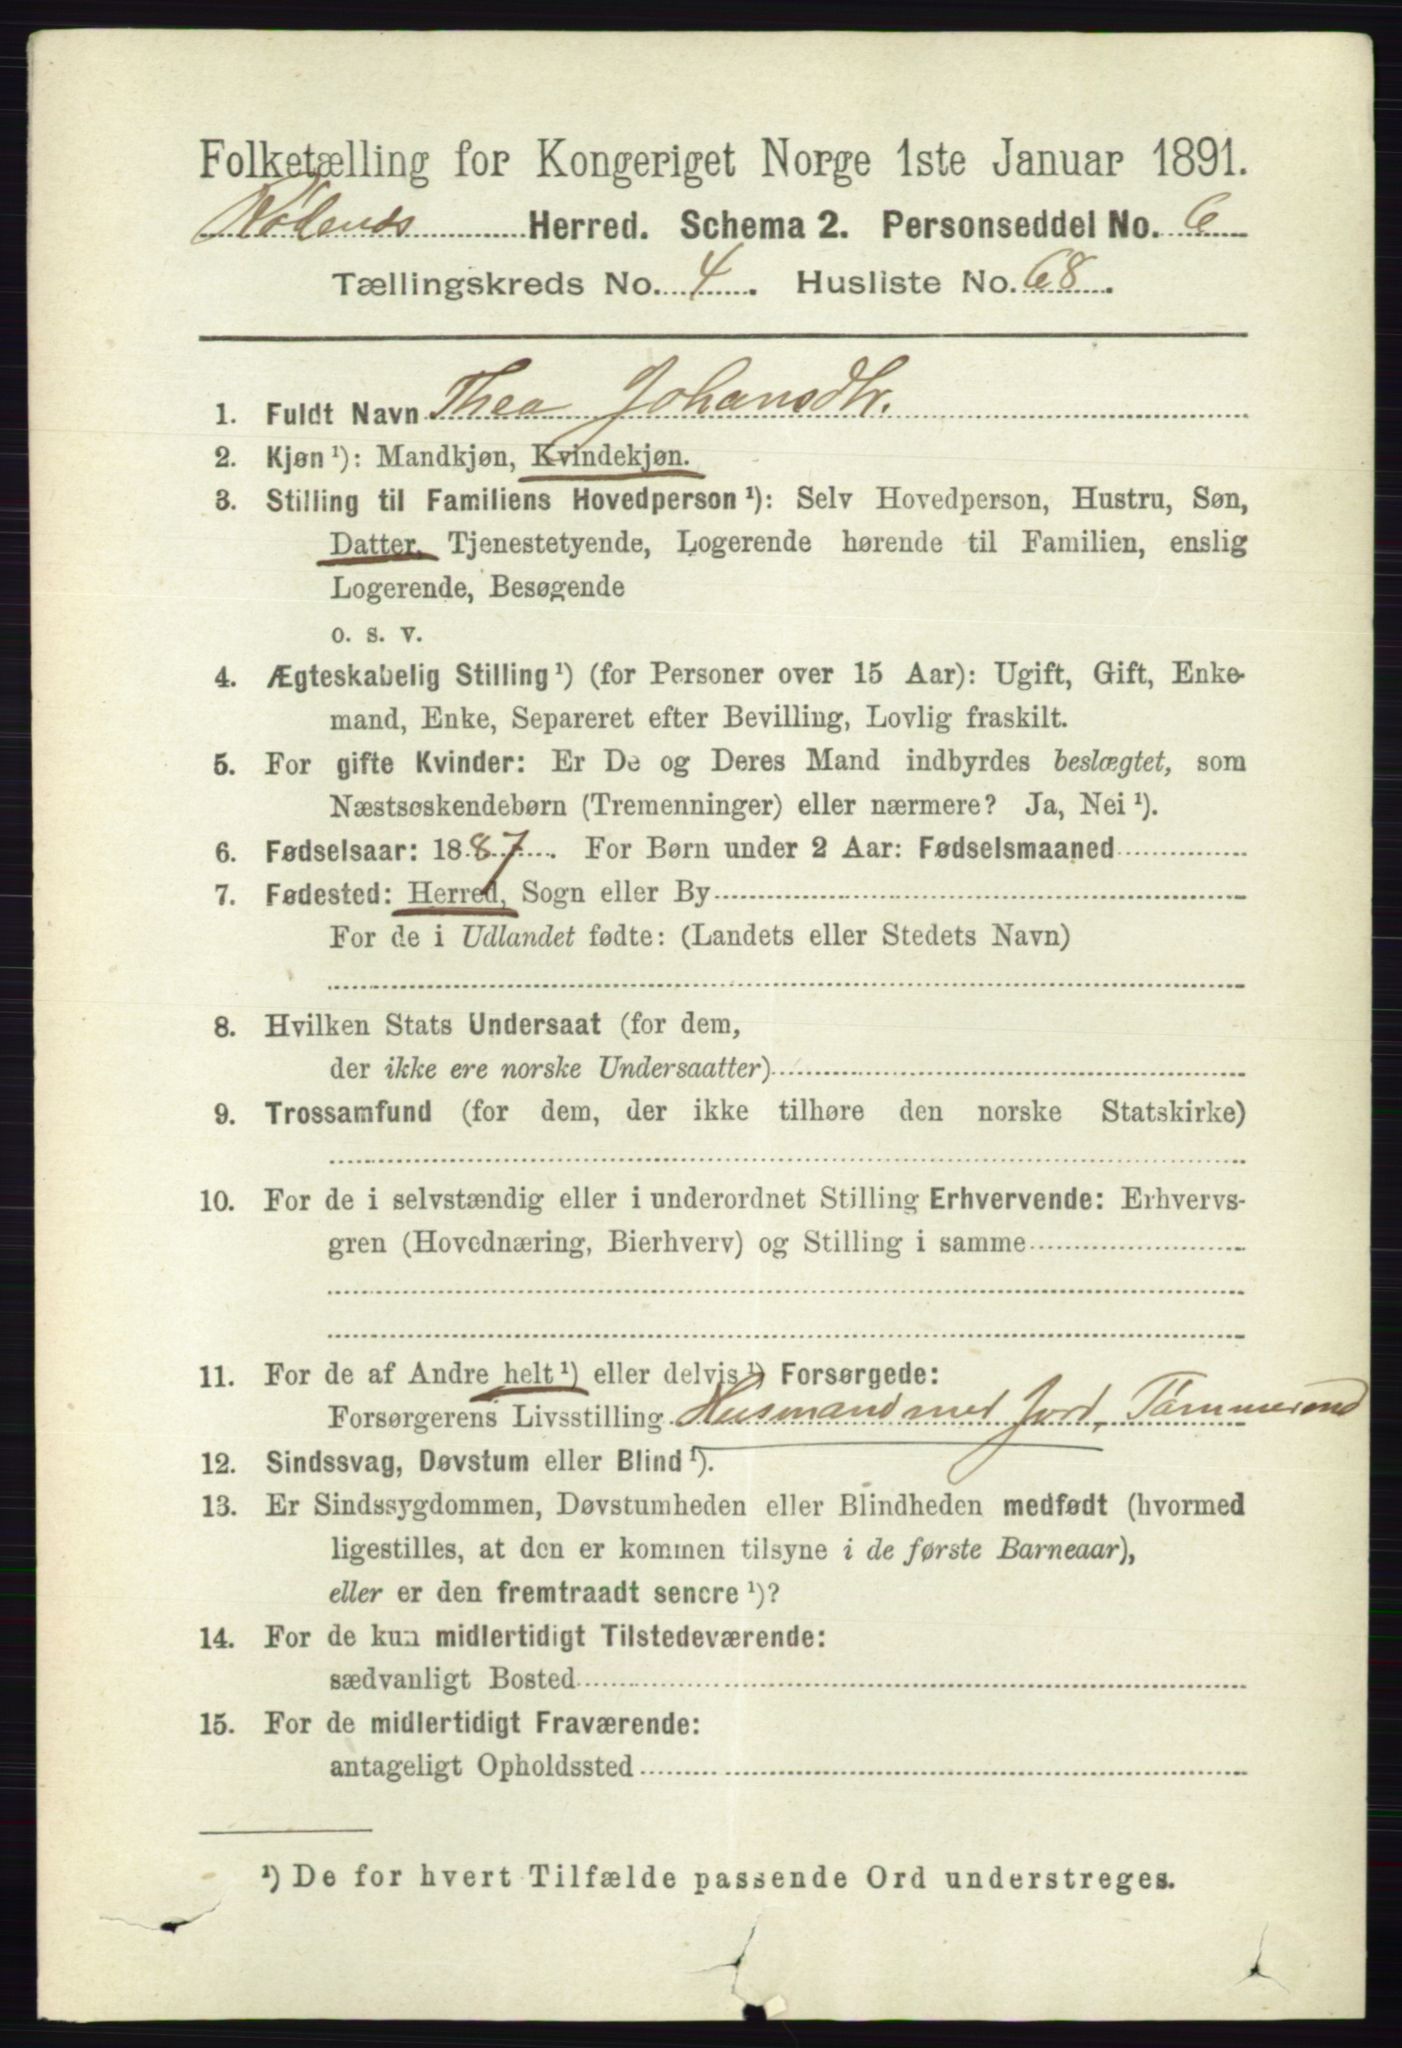 Folketælling for Kongeriget Norge 1ste Januar 1891.
Rødenes Herred. Schema 2. Personseddel No. 6
Tællingskreds No. 4. Husliste No. 68.
1. Fuldt Navn Thea Johansdtr.
2. Kjøn ¹): Mandkjøn, Kvindekjøn.
3. Stilling til Familiens Hovedperson ¹): Selv Hovedperson, Hustru, Søn,
Datter, Tjenestetyende, Logerende hørende til Familien, enslig
Logerende, Besøgende
o. s. v.
4. Ægteskabelig Stilling ¹) (for Personer over 15 Aar): Ugift, Gift, Enke-
mand, Enke, Separeret efter Bevilling, Lovlig fraskilt.
5. For gifte Kvinder: Er De og Deres Mand indbyrdes beslægtet, som
Næstsøskendebørn (Tremenninger) eller nærmere? Ja, Nei ¹).
6. Fødselsaar: 1887. For Børn under 2 Aar: Fødselsmaaned
7. Fødested: Herred, Sogn eller By
For de i Udlandet fødte: (Landets eller Stedets Navn)
8. Hvilken Stats Undersaat (for dem,
der ikke ere norske Undersaatter)
9. Trossamfund (for dem, der ikke tilhøre den norske Statskirke)
10. For de i selvstændig eller i underordnet Stilling Erhvervende: Erhvervs-
gren (Hovednæring, Bierhverv) og Stilling i samme
11. For de af Andre helt ¹) eller delvis ¹) Forsørgede:
Forsørgerens Livsstilling Husmand med Jord, Tømmermd
12. Sindssvag, Døvstum eller Blind ¹).
13. Er Sindssygdommen, Døvstumheden eller Blindheden medfødt (hvormed
ligestilles, at den er kommen tilsyne i de første Barneaar),
eller er den fremtraadt senere ¹)?
14. For de kun midlertidigt Tilstedeværende:
sædvanligt Bosted
15. For de midlertidigt Fraværende:
antageligt Opholdssted
¹) De for hvert Tilfælde passende Ord understreges.